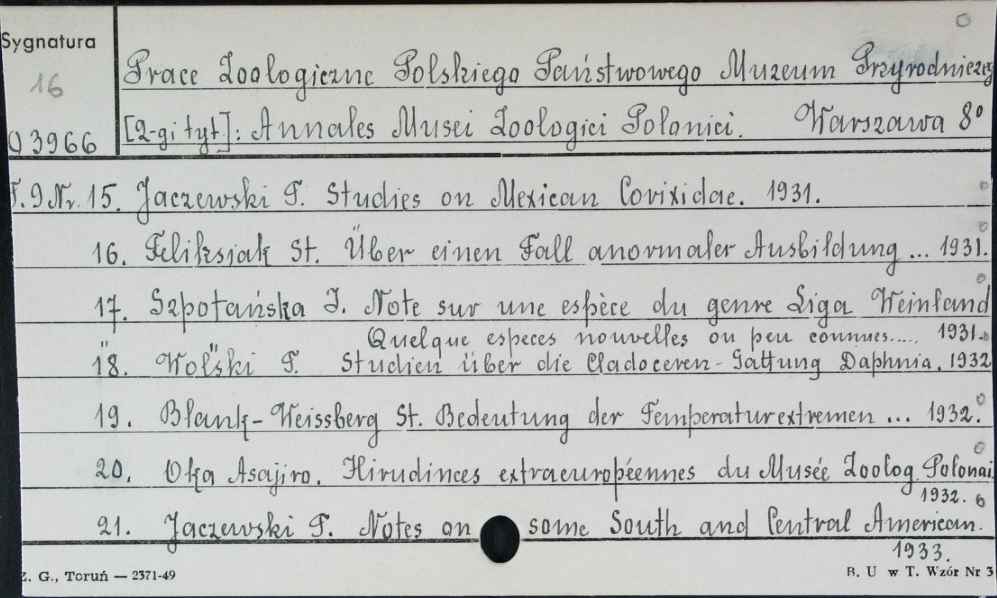 Sygnatura
16
O 3966
Prace Zoologiczne Polskiego Państwowego Muzeum Przyrodniczeg
[2-gi tyt]: Annales Musei Zoologici Polonici. Warszawa 8°
T. 9 Nr. 15. Jaczewski T. Studies on Mexican Corixidae. 1931.
16. Feliksiak St. Über einen Fall anormaler Ausbildung ... 1931.
17. Szpotańska I. Note sur une espèce du genre Liga Weinland
" " Quelque especes nouvelles ou peu connues..... 1931.
18. Wolski T. Studien über die Cladoceren-Gattung Daphnia. 1932
19. Blank-Weissberg St. Bedeutung der Temperaturextremen ... 1932.
20. Oka Asajiro. Hirudinees extraeuropéennes du Musée Zoolog. Polonai
1932.
21. Jaczewski T. Notes on some South and Central American.
1933.
Z. G., Toruń — 2371-49
B. U w T. Wzór Nr 3